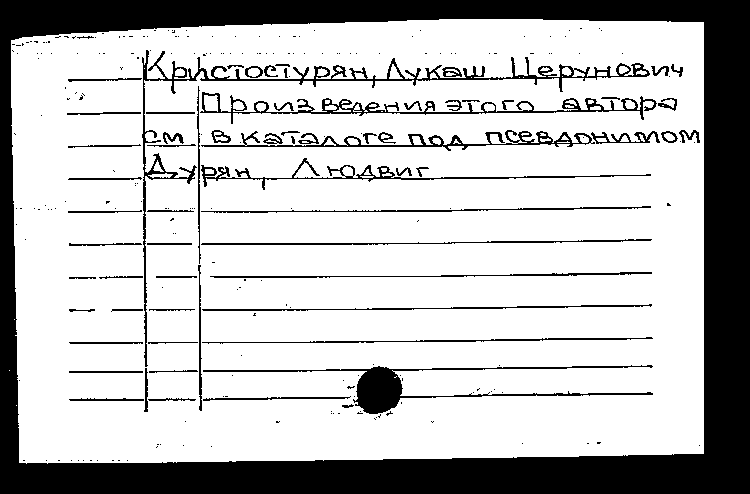 Кристостурян, Лукаш Церунович
Произведения этого автора
см в каталоге под псевдонимом
Дурян, Людвиг